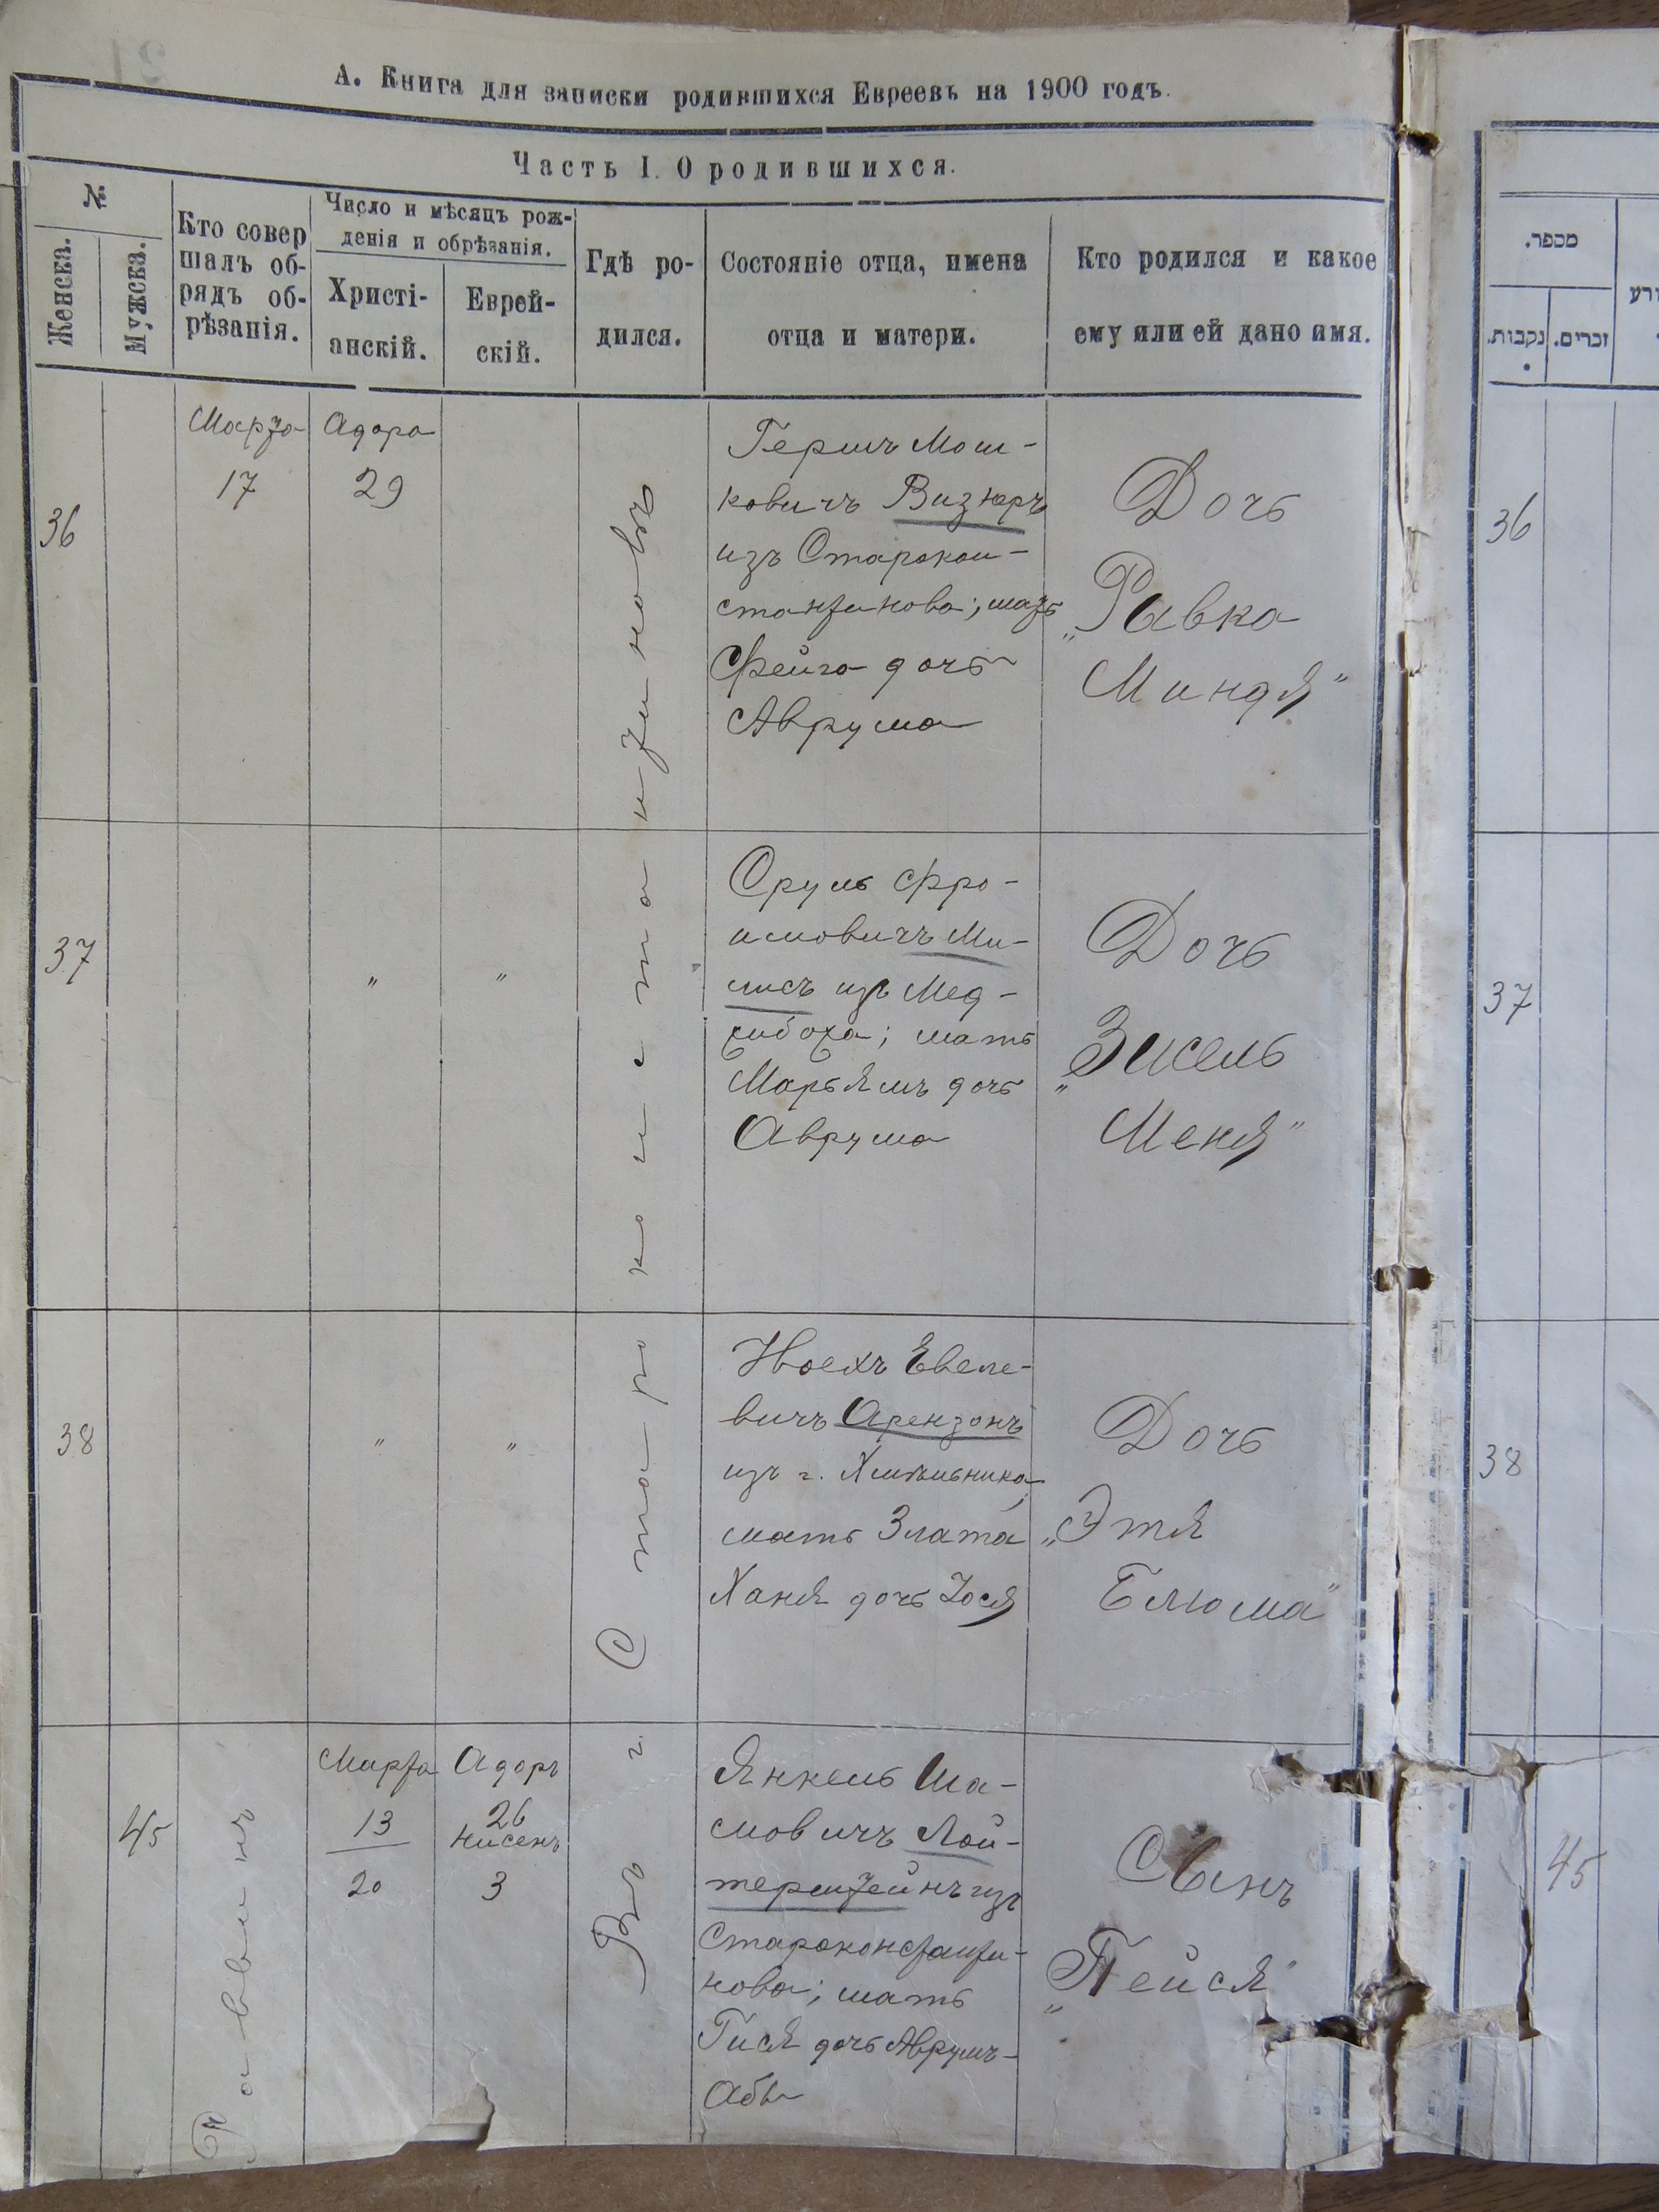 А. Книга для записки родившихся Евреевъ на 1900 годъ.
Часть I. О родившихся.
№
Женска.
Мужска.
Кто совер
шалъ об-
рядъ об-
рѣзанія.
Число и мѣсяцъ рож-
денія и обрѣзанія.
Христі-
анскій.
Еврей-
скій.
Гдѣ ро-
дился.
Состояніе отца, имена
отца и матери.
Кто родился и какое
ему или ей дано имя.
36
Марта
17
Адара
29
Гершъ Мош-
ковичъ Визнеръ
изъ Старокон-
стантинова; мать
Фейга дочь
Аврума
Дочь
„Рывка
Миндя"
37
"
"
Сруль Фро-
имовичъ Ми-
лисъ изъ Мед-
жибожа; мать
Марьямъ дочь
Аврума
Дочь
„Зисель
Меня"
38
"
"
Ноехъ Евеле-
вичъ Арензонъ
изъ г. Хмѣльника,
мать Злата
Ханя дочь Іося
Дочь
„Этя
Блюма"
45
Раввинъ
Марта
13
20
Адаръ
26
Нисенъ
3
Въ г. Староконстантиновѣ
Янкель Ша-
мовичъ Лой-
терштейнъ изъ
Староконстанти-
нова; мать
Гися дочь Аврумъ-
Абы
Сынъ
„Пейся"
מספר.
נקבות.
זכרים.
36
37
38
45